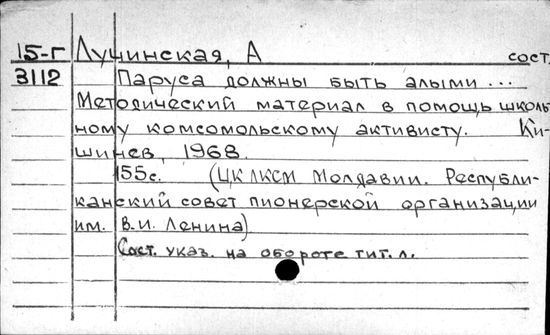 15-г Лучинская, А сост.
3112 Паруса должны быть алыми...
Методический материал в помощь школь
ному комсомольскому активисту. Ки-
шинев, 1968.
155с. (ЦК ЛКСМ Молдавии. Республи-
канский совет пионерской организации
им. В.И. Ленина)
Сост. указ. на обороте тит. л.